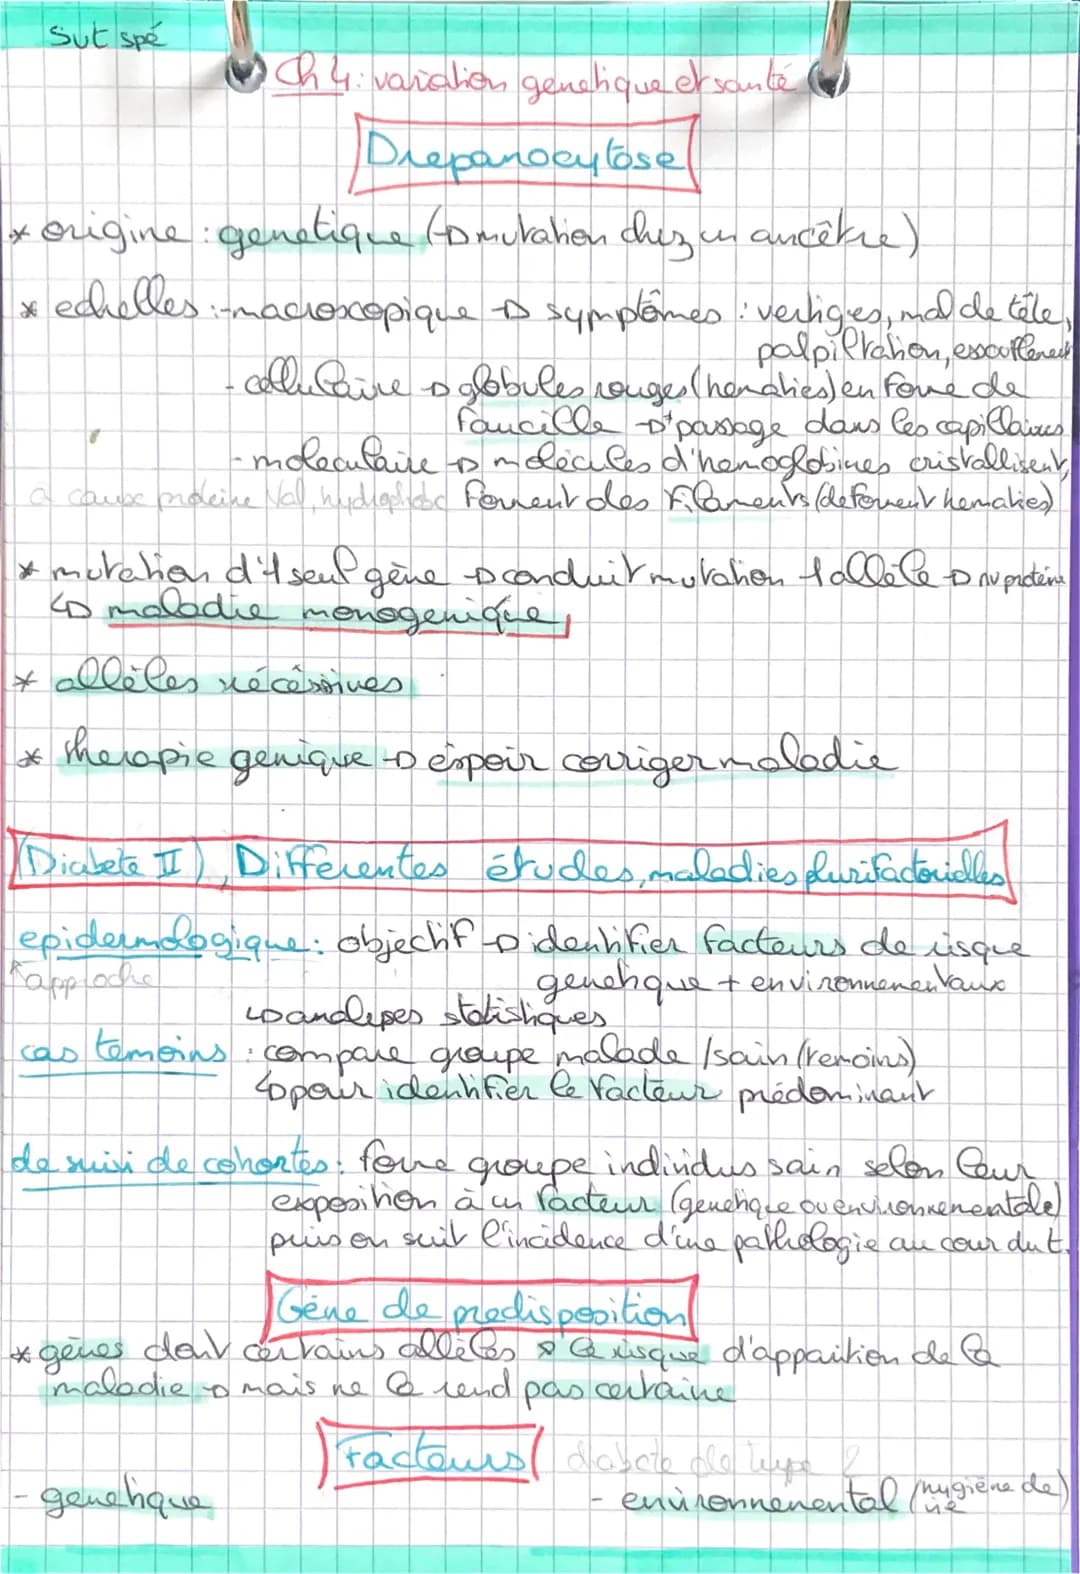 SVT spé
Ch 4 : variation genetique et santé
Drepanocytose
* origine : genetique (→ mutation chez un ancêtre)
* echelles : - macroscopique → symptômes : vertiges, mal de tête,
palpiltation, essoufflement
- cellulaire → globules rouges (hematies) en forme de
faucille → passage dans les capillaires
- moleculaire → molécules d'hemoglobines cristallisent,
à cause proteine Val, hydrophobe forment des filaments (deforment hematies)
* mutation d'1 seul gène → conduit mutation 1 allèle → nv protéine
↳ maladie monogenique
* allèles récéssives
* therapie genique → espoir corriger maladie
(Diabete II), Differentes études, maladies plurifactorielles
epidermologique : objectif → identifier facteurs de risque
↑ approche
genetique + environnementaux
↳ analyses statistiques
cas temoins : compare groupe malade / sain (temoins)
↳ pour identifier le facteur prédominant
de suivi de cohortes : forme groupe individus sain selon leur
exposition à un facteur (genetique ou environnementale)
puis on suit l'incidence d'une pathologie au cour du t.
Gène de predisposition
* gènes dont certains allèles ↗ le risque d'apparition de la
maladie → mais ne la rend pas certaine
Facteurs diabete de type 2
- genetique
- environnemental (hygiène de vie)